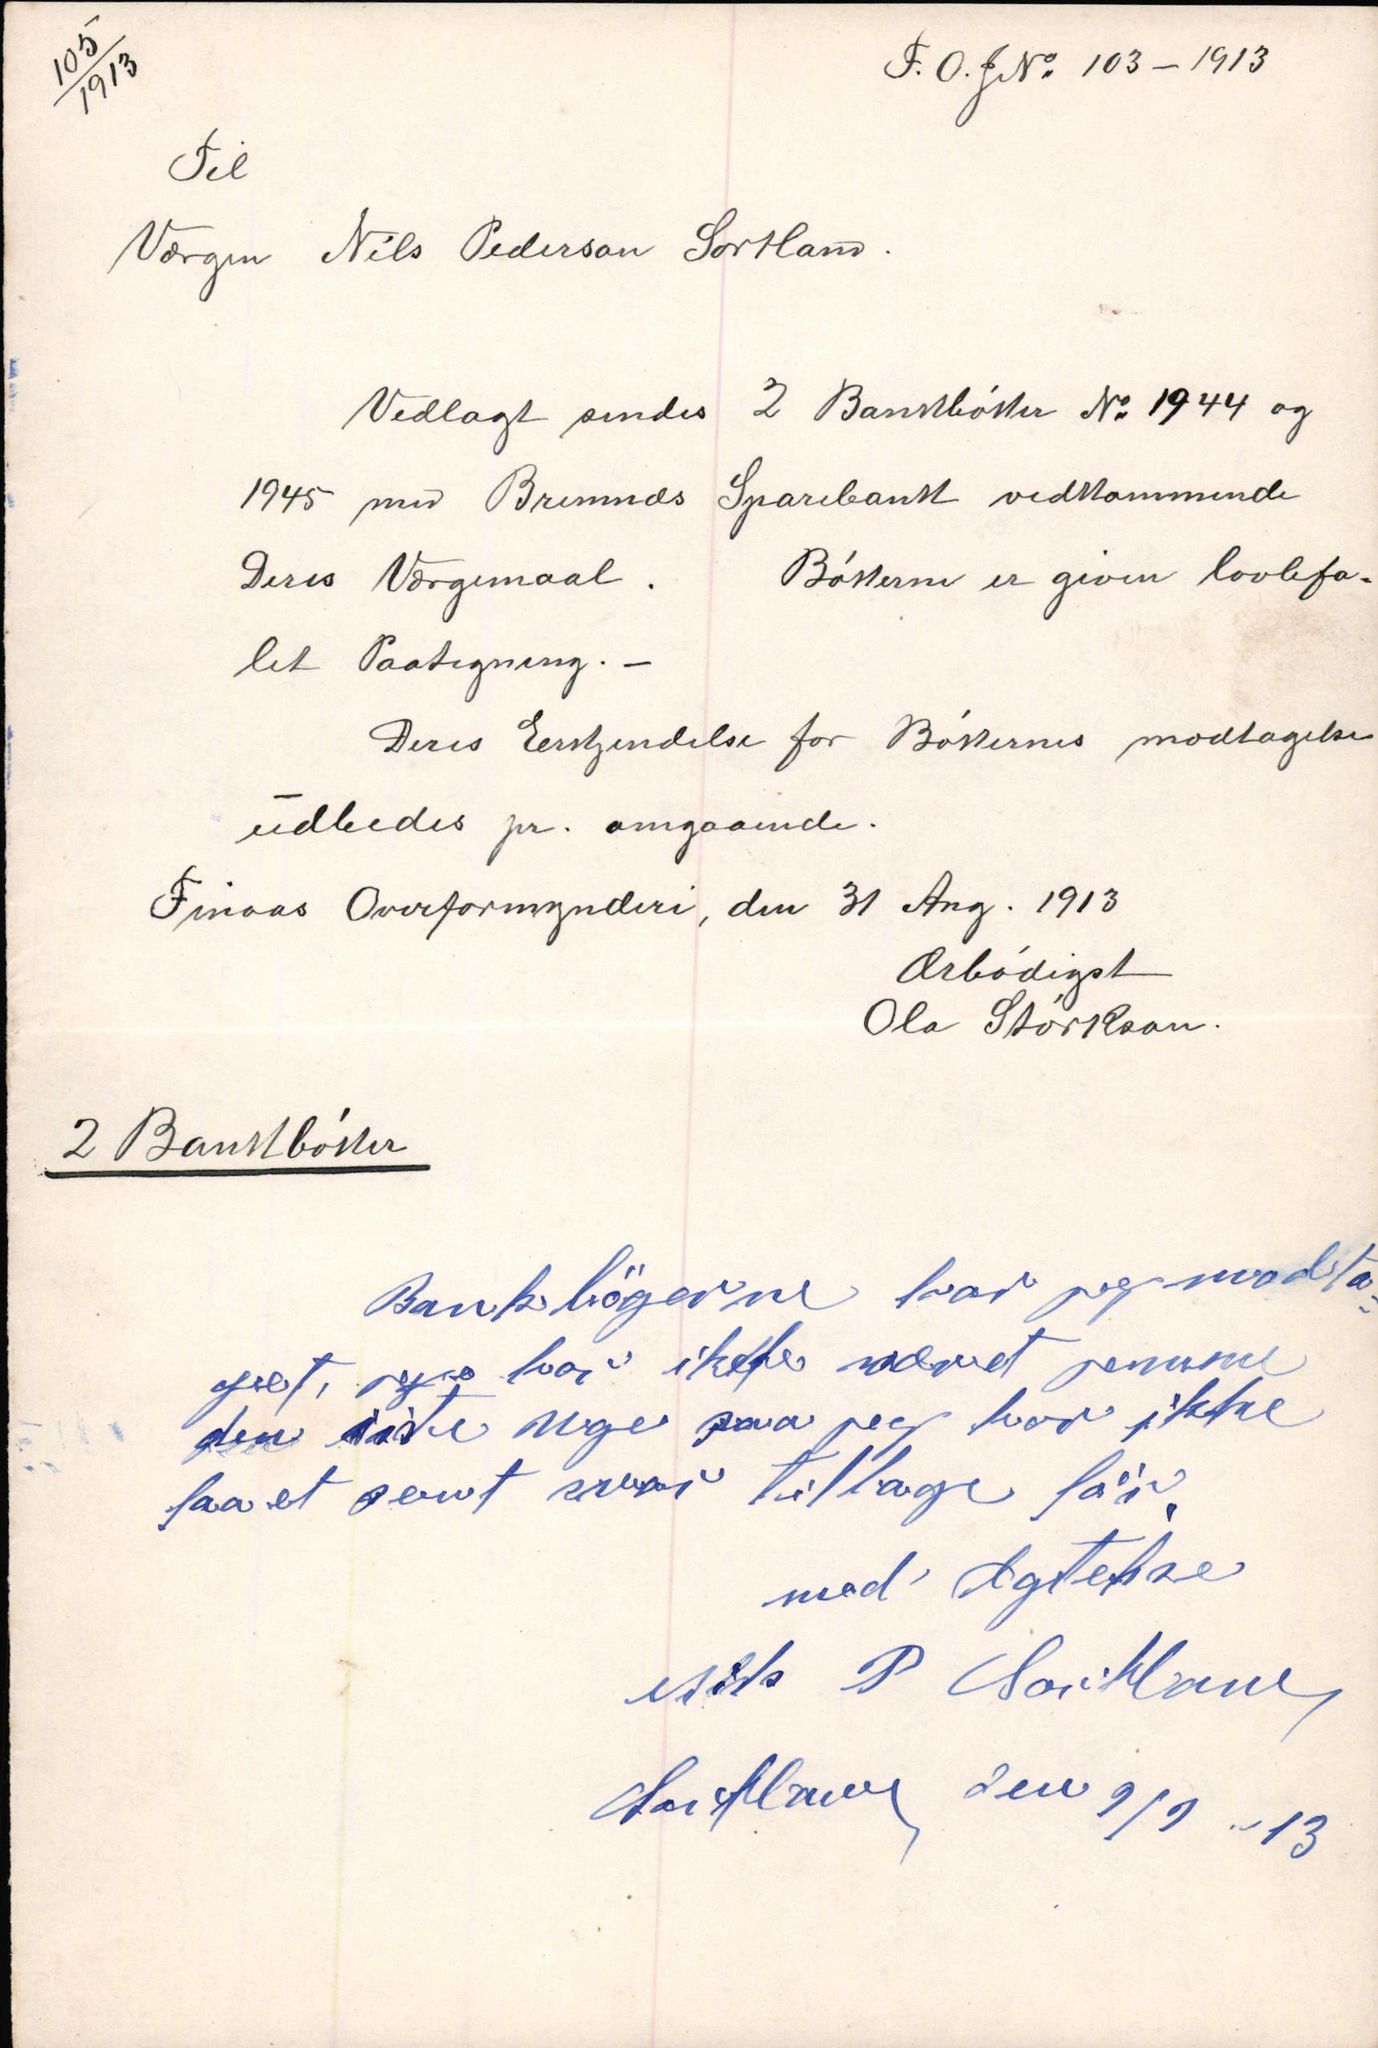 105/1913
F. O. J № 103 – 1913
Til
Værgen Nils Pederson Sortland.
Vedlagt sendes 2 Bankbóker № 1944 og
1945 med Bremnæs Sparebank vedkommende
Deres Værgemaal. Bókerne er given lovbefa-
let Paategning. –
Deres Erkjendelse for Bókernes modtagelse
udbedes pr. omgaaende.
Finaas Overformynderi, den 31 Aug. 1913
Ærbódigst
Ola Störkson.
2 Bankbóker
Bankbögerne har jeg modta-
get, jeg har ikke været jemme
den siste Uge saa jeg har ikke
faaet sent svar tilbage för.
med Agtelse
Nils P Sortland
Sortland den 9/9 - 13